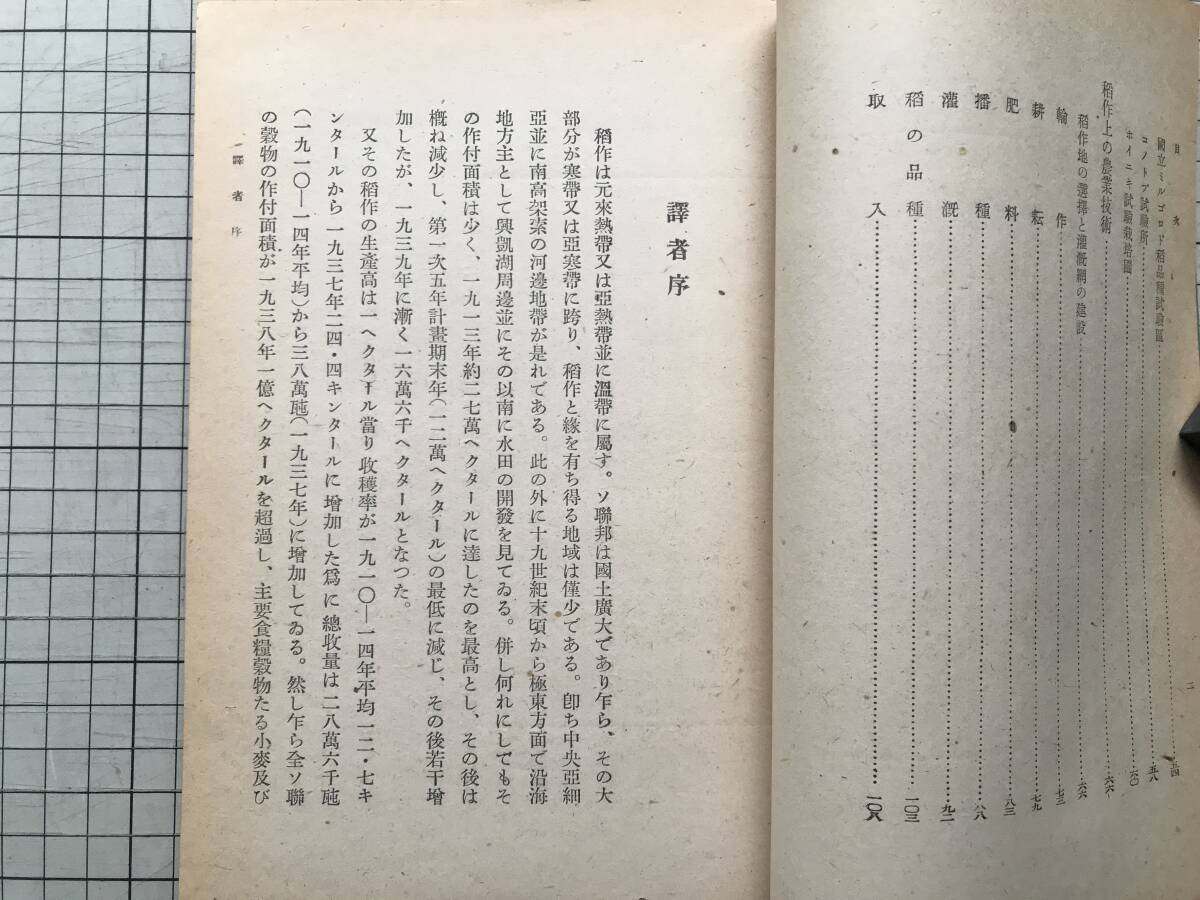 目次
二
國立ミルゴロド稻品種試驗區…五四
コノトプ試驗所…五八
ホイニキ試驗栽培園…六〇
稻作上の農業技術…六六
稻作地の選擇と灌漑網の建設…六六
輪作…七三
耕耘…七九
肥料…八三
播種…八八
灌漑…九二
稻の品種…一〇三
取入…一〇八
譯者序
稻作は元來熱帶又は亞熱帶並に溫帶に屬す。ソ聯邦は國土廣大であり乍ら、その大
部分が寒帶又は亞寒帶に跨り、稻作と緣を有ち得る地域は僅少である。卽ち中央亞細
亞並に南高架索の河邊地帶が是れである。此の外に十九世紀末頃から極東方面で沿海
地方主として興凱湖周邊並にその以南に水田の開發を見てゐる。併し何れにしてもそ
の作付面積は少く、一九一三年約二七萬ヘクタールに達したのを最高とし、その後は
槪ね減少し、第一次五年計畫期末年(一二萬ヘクタール)の最低に減じ、その後若干增
加したが、一九三九年に漸く一六萬六千ヘクタールとなつた。
又その稻作の生產高は一ヘクタール當り收穫率が一九一〇—一四年平均一二・七キ
ンタールから一九三七年二四・四キンタールに增加した爲に總收量は二八萬六千瓲
(一九一〇—一四年平均)から三八萬瓲(一九三七年)に增加してゐる。然し乍ら全ソ聯
の穀物の作付面積が一九三八年一億ヘクタールを超過し、主要食糧穀物たる小麥及び
譯者序